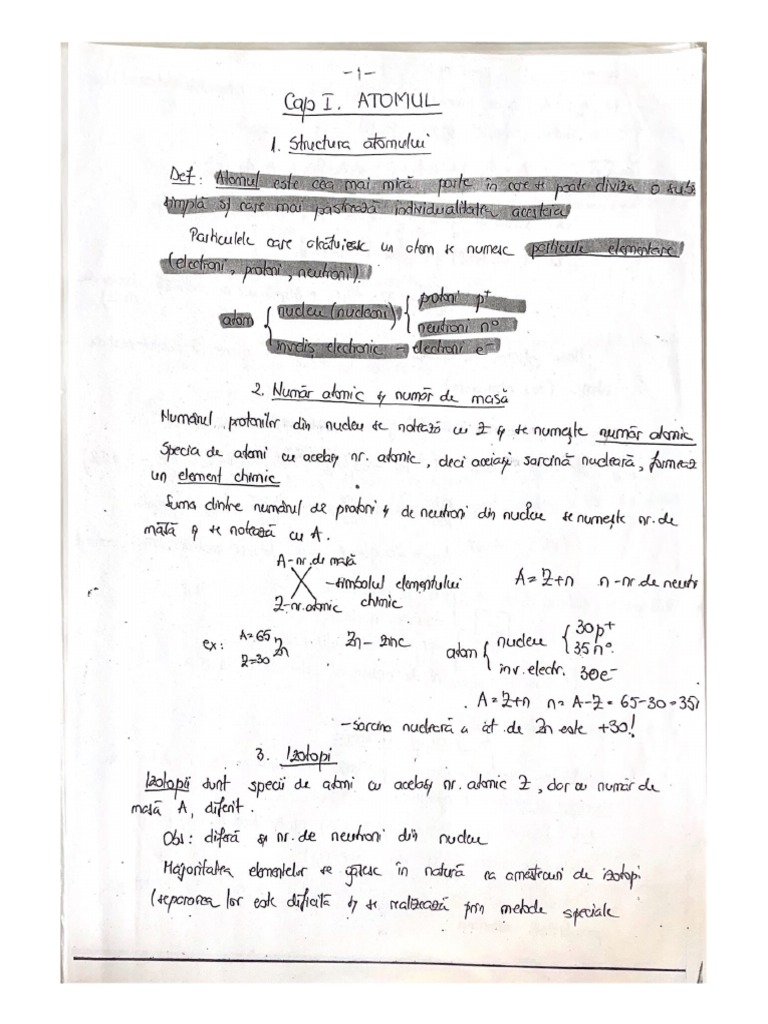 -1-
Cap I. ATOMUL
1. Structura atomului
Def: Atomul este cea mai mică parte în care se poate diviza o subs
simplă și care mai pastrează individualitatea acesteia
Particulele care alcătuiesc un atom se numesc particule elementare
(electroni, protoni, neutroni).
atom { nucleu (nucleoni) { protoni p+
neutroni n°
înveliș electronic - electroni e-
2. Număr atomic și număr de masă
Numărul protonilor din nucleu se notează cu Z și se numește număr atomic
Specia de atomi cu același nr. atomic, deci aceiași sarcină nucleară, formează
un element chimic
Suma dintre numărul de protoni și de neutroni din nucleu se numește nr. de
masă și se notează cu A.
A-nr. de masă
-simbolul elementului A=Z+n n-nr. de neutr
Z-nr. atomic chimic
ex: A=65 Zn Zn-zinc atom { nucleu { 30p+
Z=30 35n°
inv. electr. 30e-
A=Z+n n=A-Z=65-30=35
-sarcina nucleară a at. de Zn este +30!
3. Izotopi
Izotopii sunt specii de atomi cu același nr. atomic Z, dar cu număr de
masă A, diferit.
Obs: diferă și nr. de neutroni din nucleu
Majoritatea elementelor se găsesc în natură ca amestecuri de izotopi
(separarea lor este dificilă și se realizează prin metode speciale